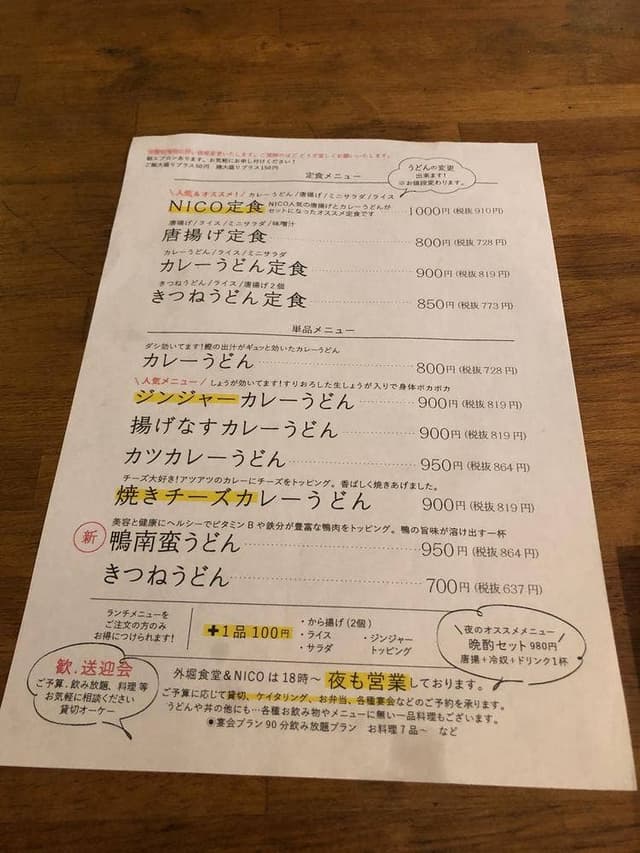 価格変更いたします。ご理解のほどどうぞ宜しくお願いいたします。
紙エプロンあります。お気軽にお申し付けください!
ご飯大盛りプラス50円 麺大盛りプラス150円
定食メニュー
うどんの変更
出来ます!
※お値段変わります。
\人気&オススメ!/ カレーうどん/唐揚げ/ミニサラダ/ライス
NICO定食 NICO人気の唐揚げとカレーうどんが
セットになったオススメ定食です
1000円(税抜910円)
唐揚げ/ライス/ミニサラダ/味噌汁
唐揚げ定食 800円(税抜728円)
カレーうどん/ライス/ミニサラダ
カレーうどん定食 900円(税抜819円)
きつねうどん/ライス/唐揚げ2個
きつねうどん定食 850円(税抜773円)
単品メニュー
ダシ効いてます!鰹の出汁がギュッと効いたカレーうどん
カレーうどん 800円(税抜728円)
\人気メニュー/ しょうが効いてます!すりおろした生しょうが入りで身体ポカポカ
ジンジャーカレーうどん 900円(税抜819円)
揚げなすカレーうどん 900円(税抜819円)
カツカレーうどん 950円(税抜864円)
チーズ大好き!アツアツのカレーにチーズをトッピング。香ばしく焼きあげました。
焼きチーズカレーうどん 900円(税抜819円)
美容と健康にヘルシーでビタミンBや鉄分が豊富な鴨肉をトッピング。鴨の旨味が溶け出す一杯
新 鴨南蛮うどん 950円(税抜864円)
きつねうどん 700円(税抜637円)
ランチメニューを
ご注文の方のみ
お得につけられます!
+1品100円
・から揚げ(2個)
・ライス
・サラダ
・ジンジャー
トッピング
\夜のオススメメニュー/
晩酌セット980円
唐揚+冷奴+ドリンク1杯
歓.送迎会
ご予算、飲み放題、料理 等
お気軽に相談ください
貸切オーケー
外堀食堂&NICOは18時~ 夜も営業しております。
ご予算に応じて貸切、ケイタリング、お弁当、各種宴会などのご予約を承ります。
うどんや丼の他にも…各種お飲み物やメニューに無い一品料理もございます。
●宴会プラン90分飲み放題プラン お料理7品~ など